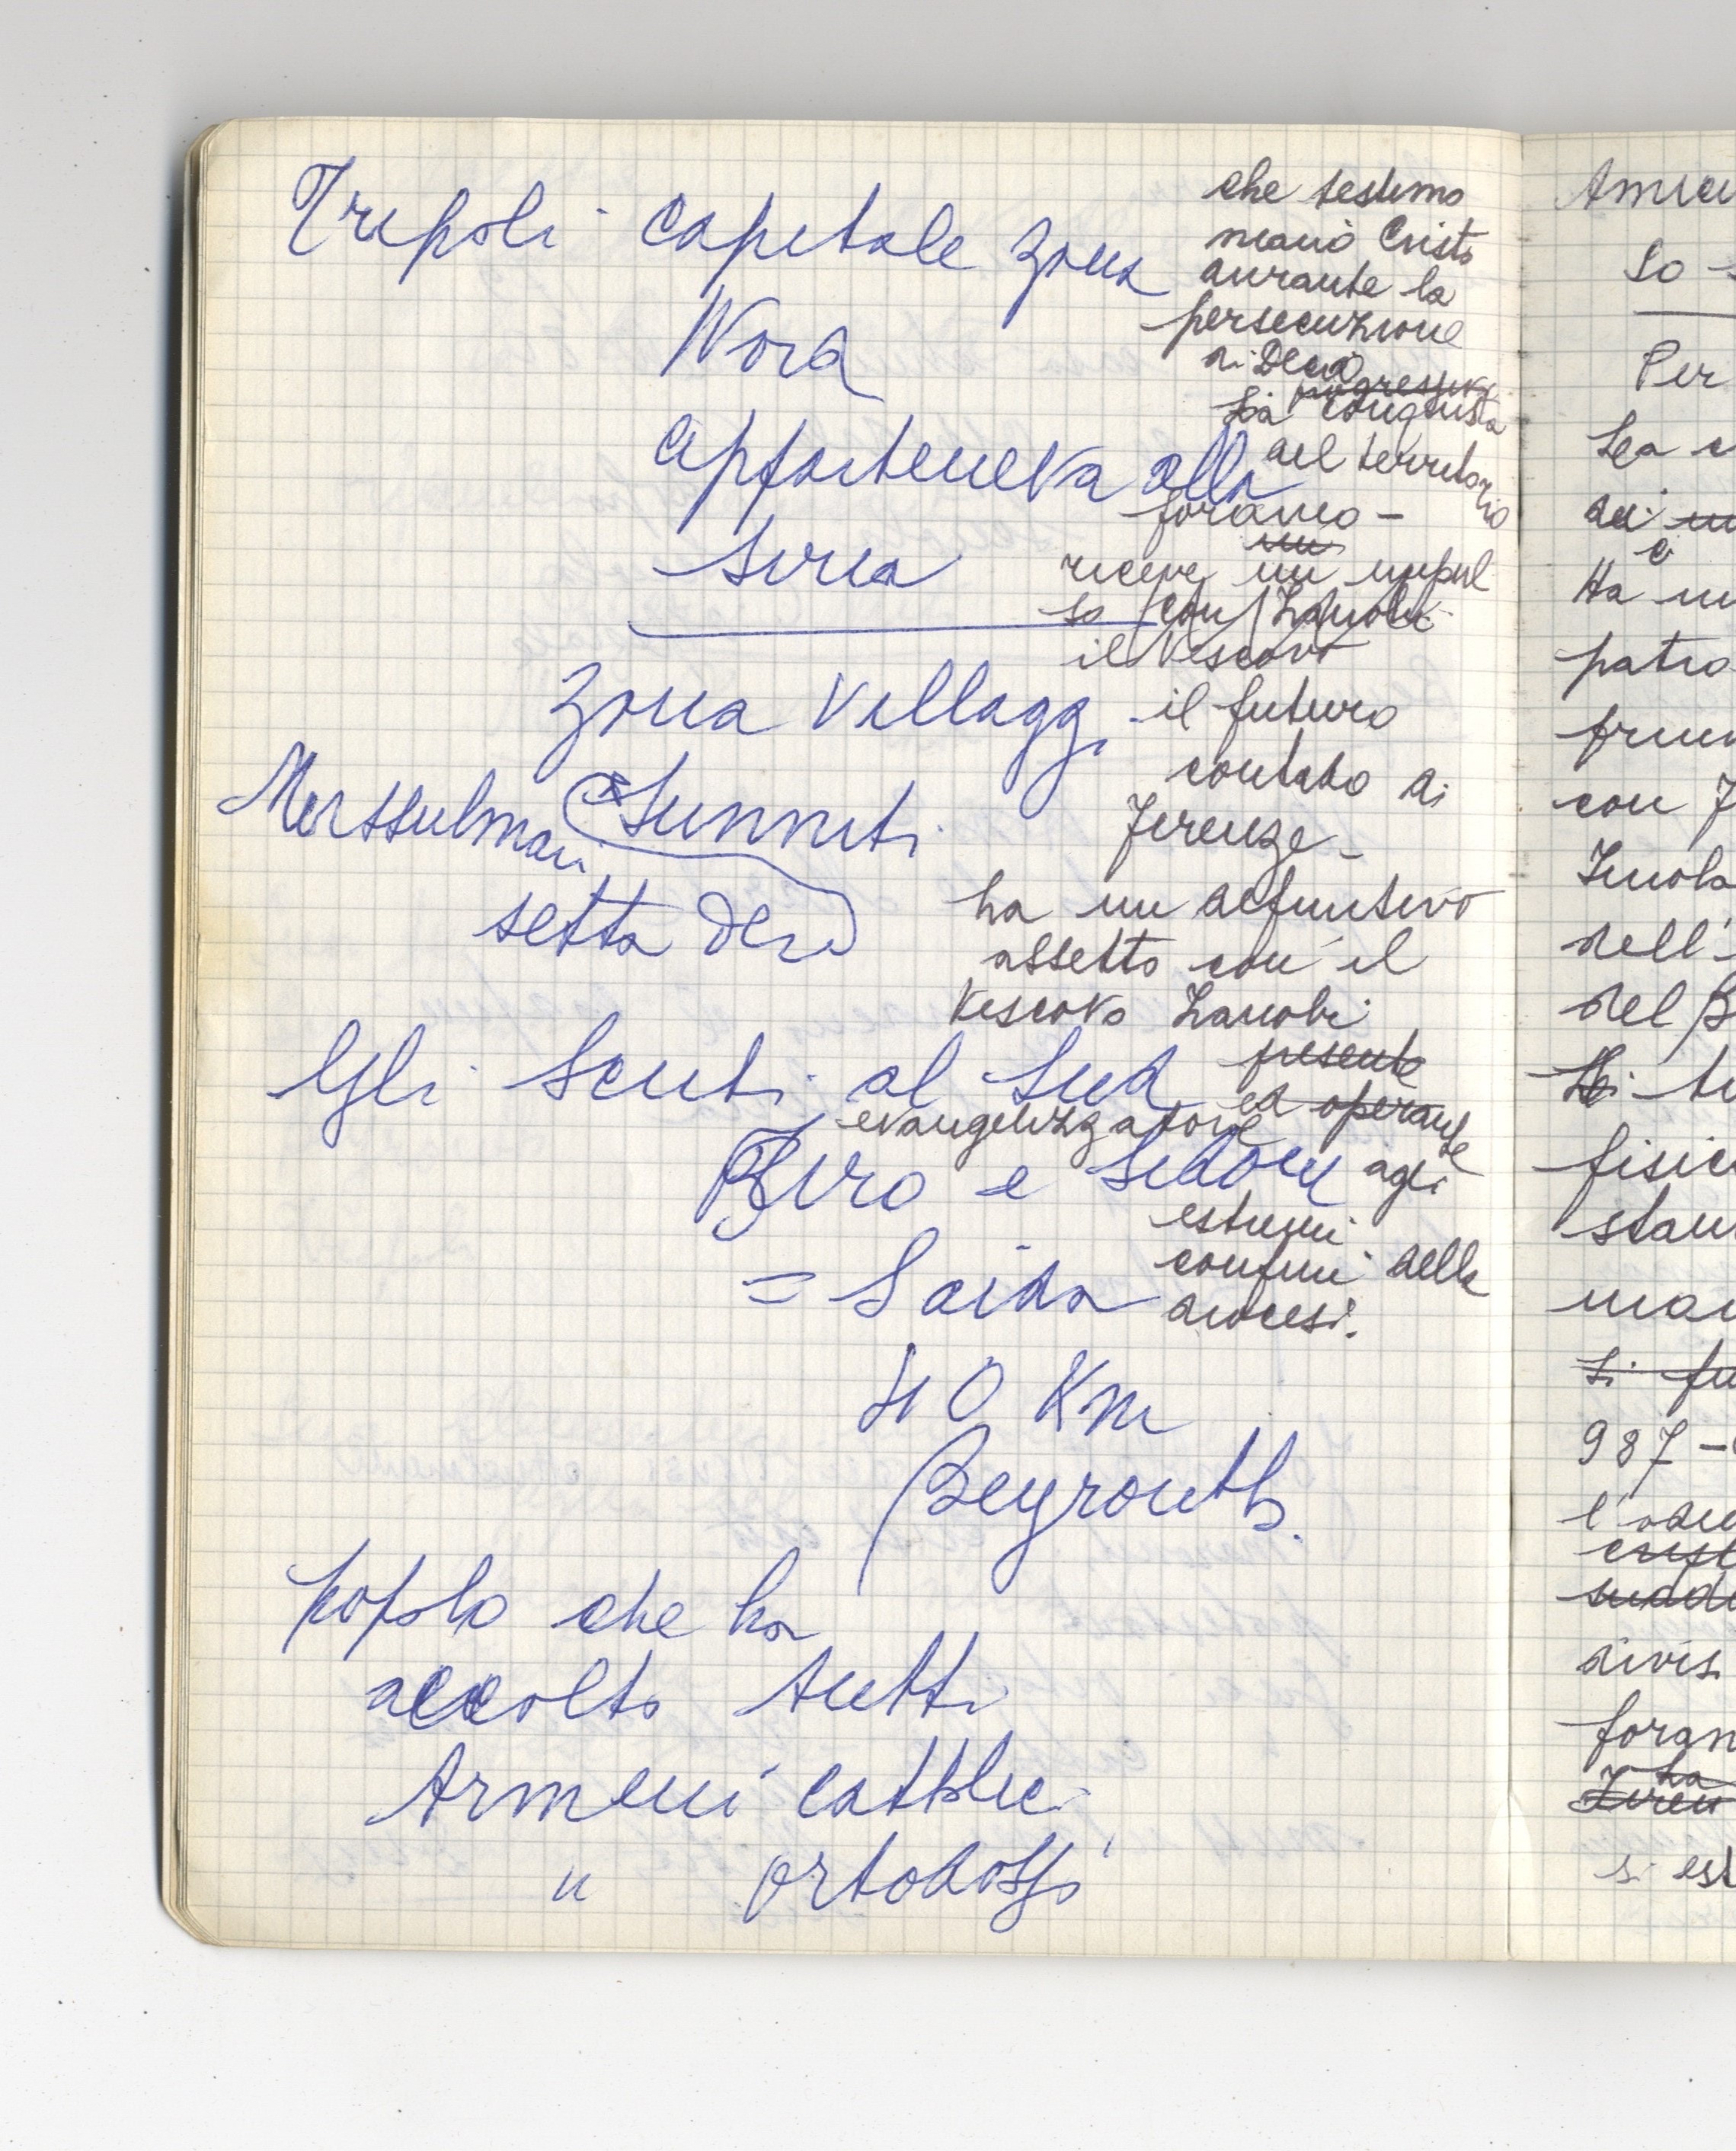 Tripoli capitale zona
Nord
apparteneva alla
Siria
zona villaggi
Mussulmani Sunniti
setta
Gli Sciiti al Sud
Tiro e Sidone
= Saida
40 Km
Beyrouth.
popolo che ha
accolto tutti
Armeni cattolici
" ortodossi
che testimo
niavò Cristo
durante la
persecuzione
di Decio
progressiva
La conquista
del territorio
foraneo -
un
riceve un impul
so con Zanobi
il Vescovo
il futuro
contado di
Firenze -
ha un definitivo
assetto con il
Vescovo Zanobi
presente
ed operante
evangelizzatore
agli
estremi
confini della
diocesi.
So
Per
La c
dei
Ha
patro
con
Imola
dell'
del B
fisic
987 -
divis
foran
ha
si est